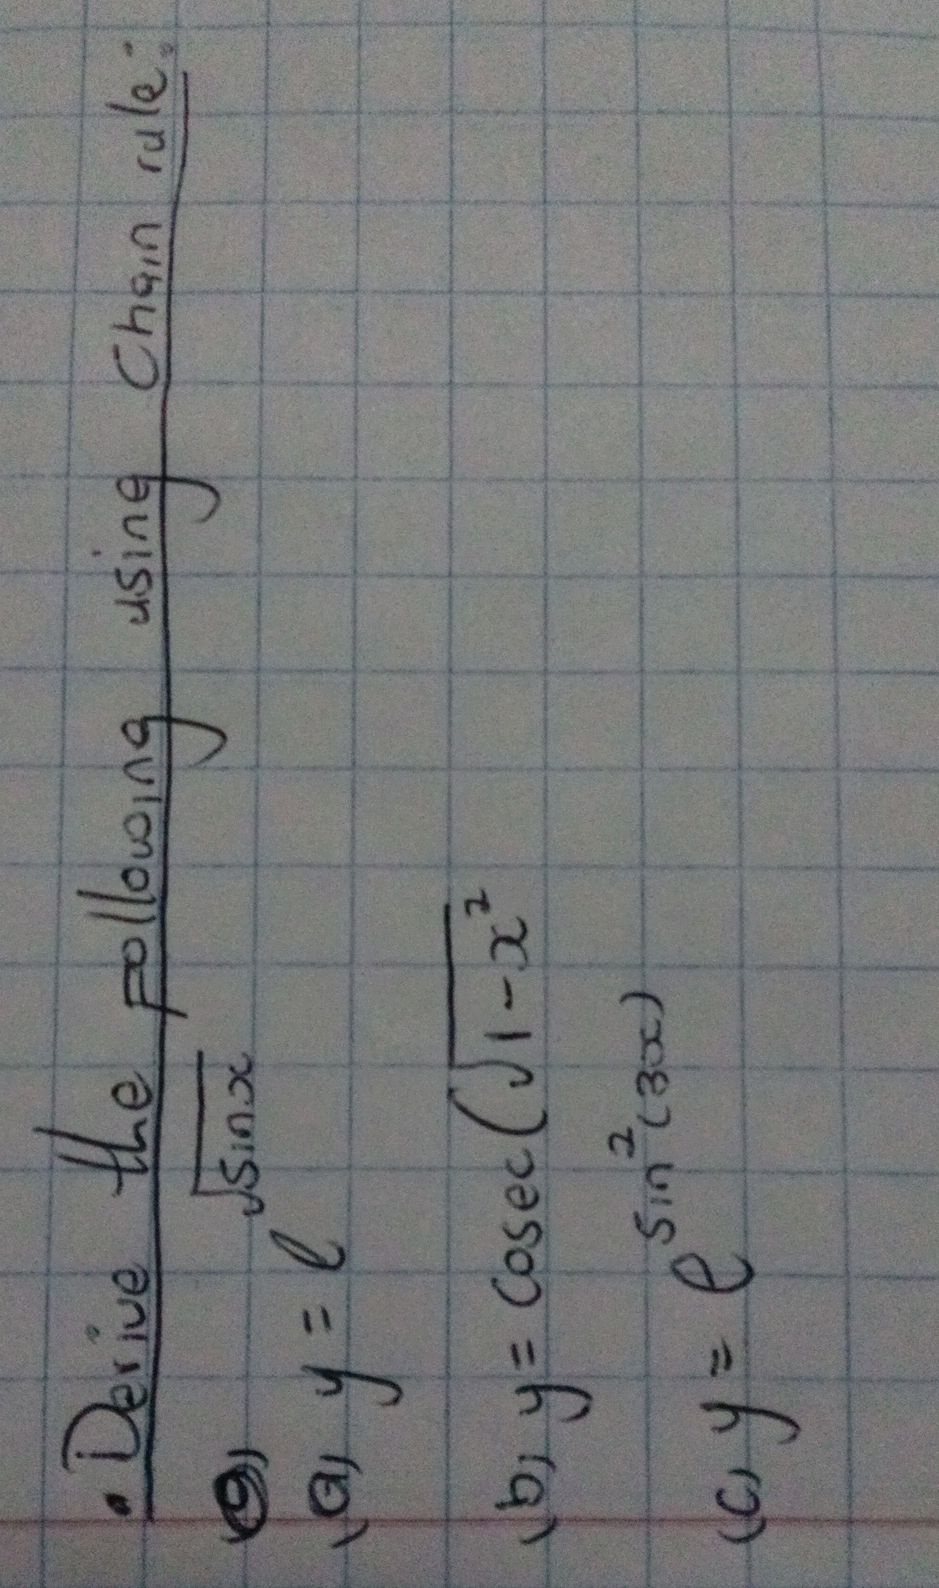 • Derive the following using Chain rule:
(a) y = e^√sinx
(b) y = cosec(√1-x²
(c) y = e^sin²(3x)